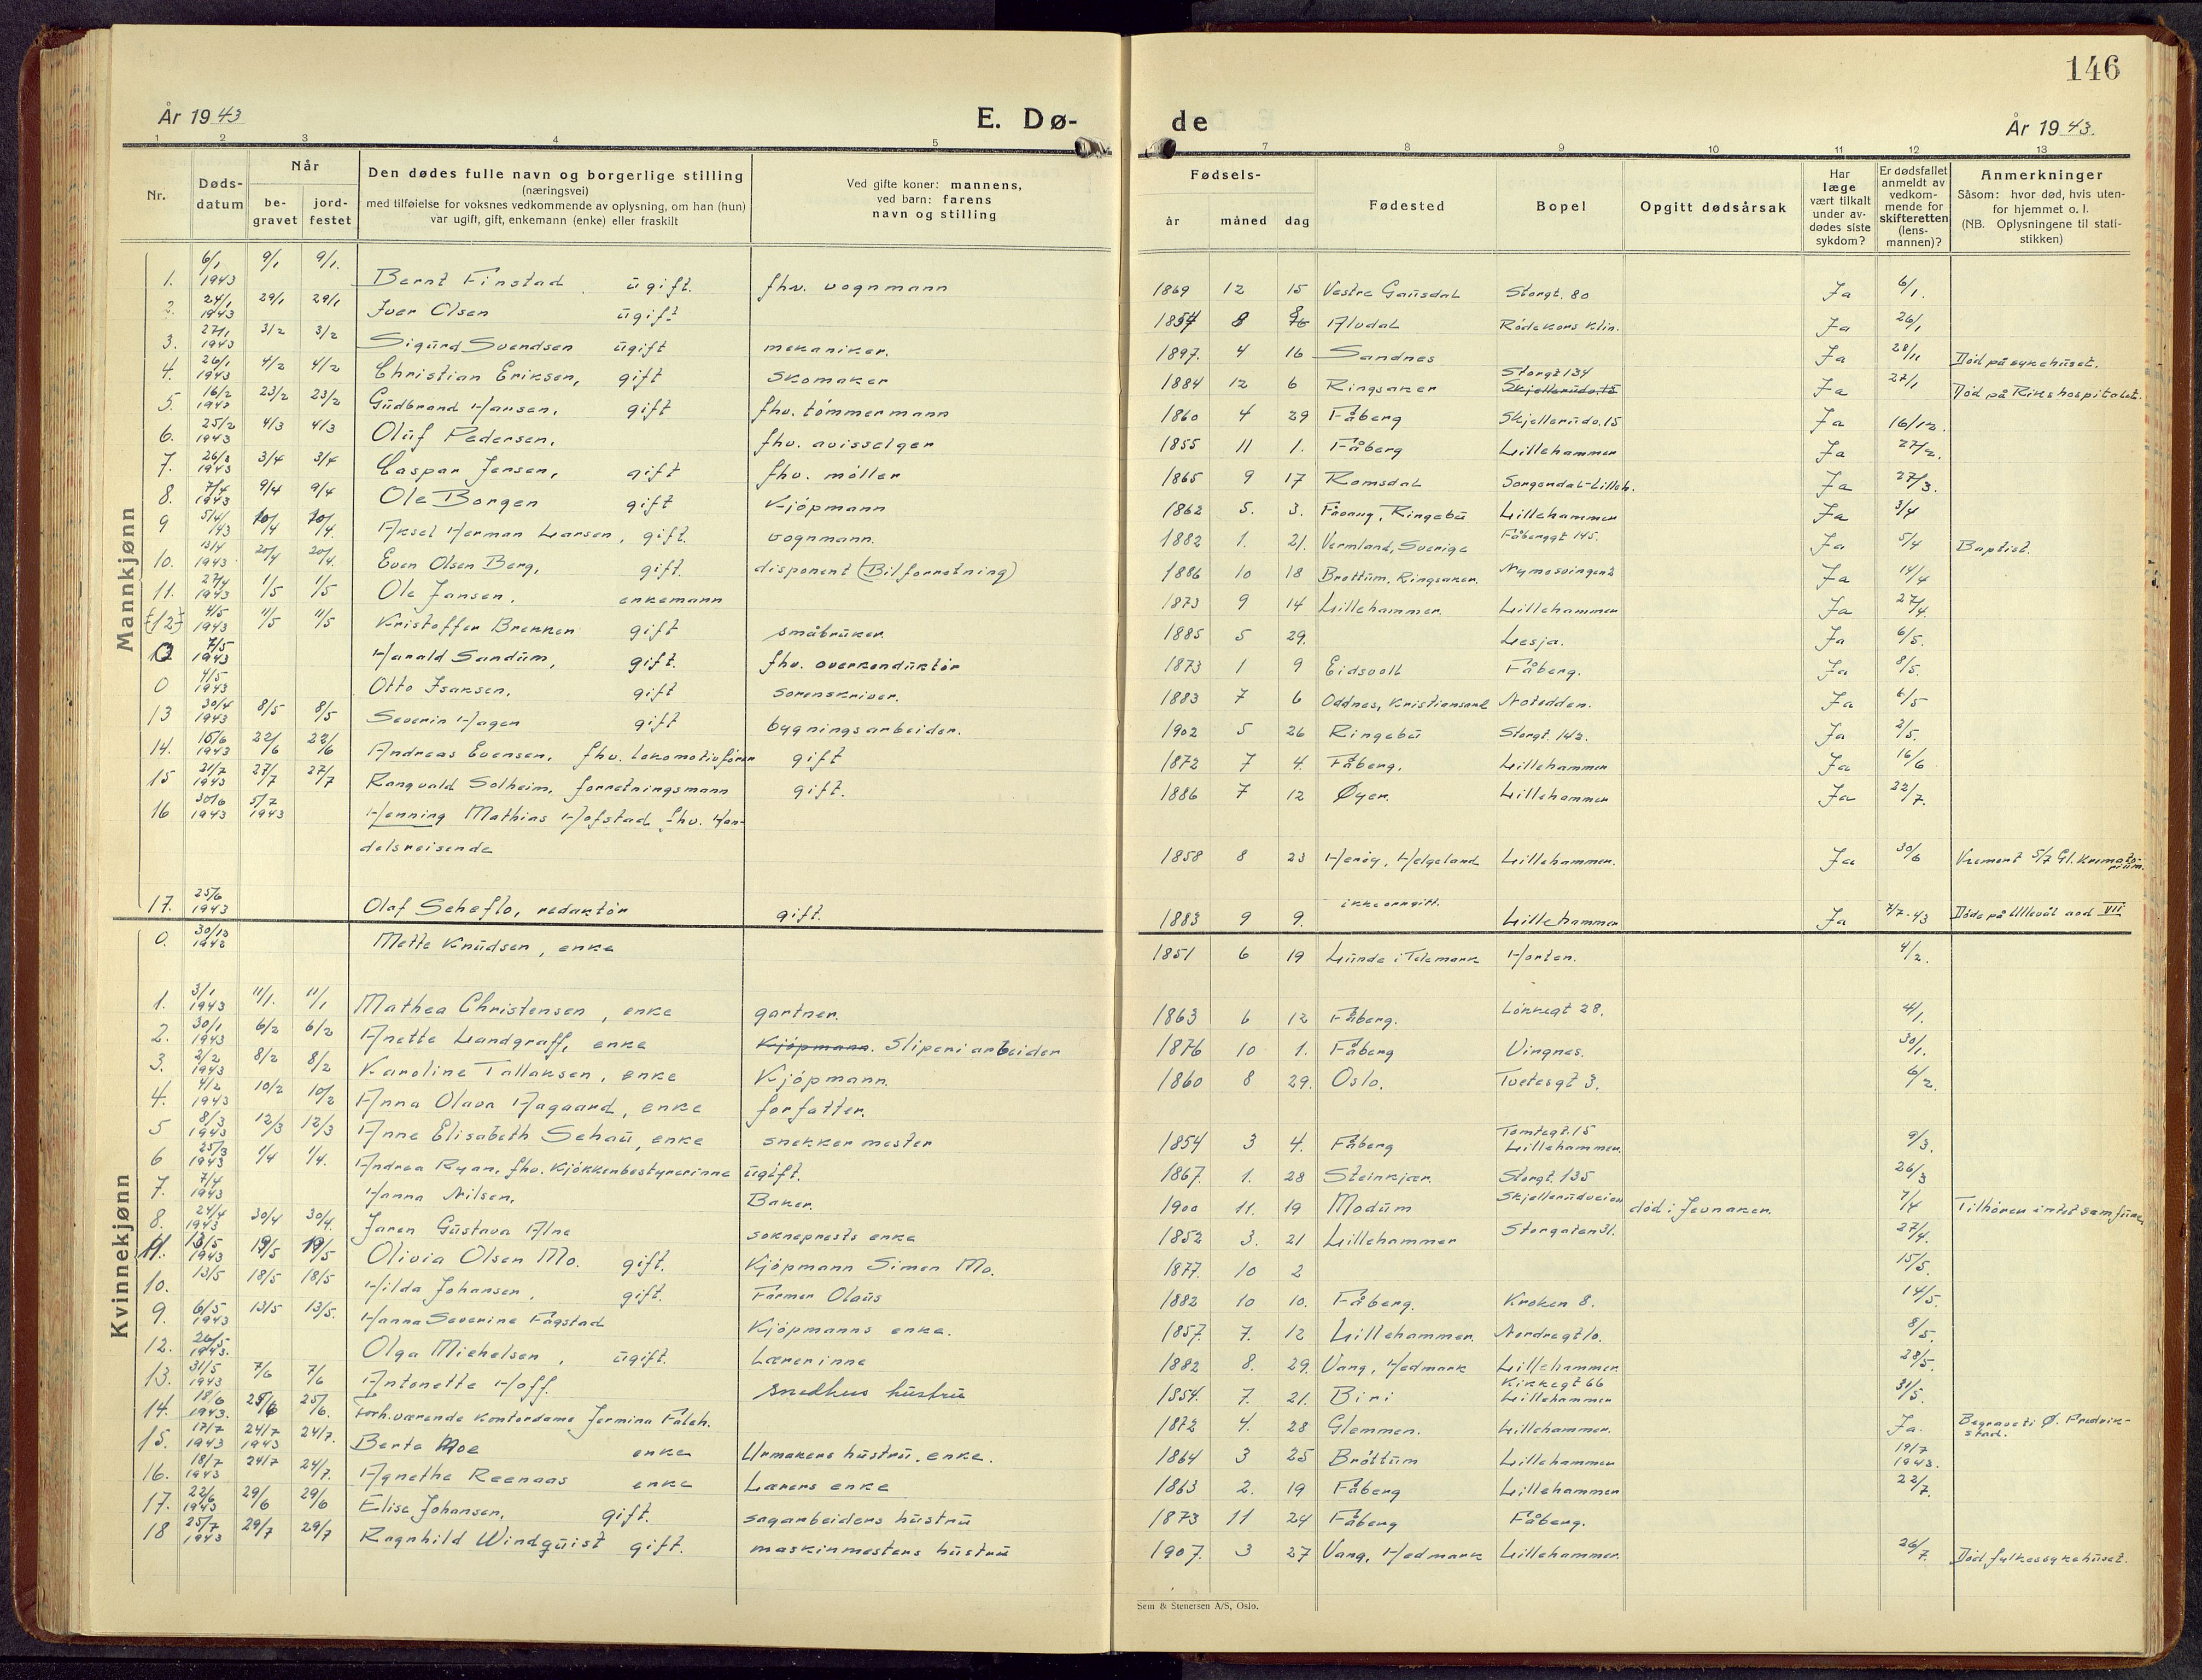 146
År 1943
E. Dø-
de
År 1943.
1 2 3 4 5 7 8 9 10 11 12 13
Nr.
Døds-
datum
Når
be-
gravet
jord-
festet
Den dødes fulle navn og borgerlige stilling
(næringsvei)
med tilføielse for voksnes vedkommende av oplysning, om han (hun)
var ugift, gift, enkemann (enke) eller fraskilt
Ved gifte koner: mannens,
ved barn: farens
navn og stilling
Fødsels-
år måned dag
Fødested
Bopel
Opgitt dødsårsak
Har
læge
vært tilkalt
under av-
dødes siste
sykdom?
Er dødsfallet
anmeldt av
vedkom-
mende for
skifteretten
(lens-
mannen)?
Anmerkninger
Såsom: hvor død, hvis uten-
for hjemmet o. l.
(NB. Oplysningene til stati-
stikken)
Mannkjønn
1. 6/1 1943 9/1 9/1. Bernt Finstad ugift. fhv. vognmann 1869 12 15 Vestre Gausdal Storgt. 80 Ja 6/1.
2. 24/1 1943 29/1 29/1 Iver Olsen ugift 1854 8 8 Alvdal Rödekors Klin. Ja 26/1
3. 27/1 1943 3/2 3/2 Sigurd Svendsen ugift mekaniker. 1897. 4 16 Sandnes Ja 28/11 Död på sykehuset.
4. 26/1 1943 4/2 4/2 Christian Eriksen, gift skomaker 1884 12 6 Ringsaker Storgt 134 Ja 27/1 Död på Rikshospitalet.
5. 16/2 1943 23/2 23/2 Gudbrand Hansen, gift fhv. tömmermann 1860 4 29 Fåberg Skjellerudv. 15 Ja 16/12.
6. 25/2 1943 4/3 4/3 Oluf Pedersen, fhv. avisselger 1855 11 1. Fåberg Lillehammer Ja 27/2.
7. 26/3 1943 3/4 3/4 Caspar Jensen, gift fhv. möller 1865 9 17 Romsdal Sorgendal-Lilleh. Ja 27/3.
8. 7/4 1943 9/4 9/4 Ole Borgen gift Kjöpmann 1862 5. 3. Fåvang, Ringebu Lillehammer Ja 3/4
9 5/4/43 10/4 10/4. Aksel Herman Larsen, gift. vognmann. 1882 1. 21. Vermland, Sverige Fåberggt 145. Ja 5/4 Baptist.
10. 13/4 1943 20/4 20/4. Even Olsen Berg, gift. disponent (Bilforretning) 1886 10 18 Brøttum, Ringsaker. Nymosvingen 2 Ja 14/4
11. 27/4 1943 1/5 1/5 Ole Jansen, enkemann 1873 9 14 Lillehammer. Lillehammer Ja 27/4.
(12) 4/5 1943 11/5 11/5 Kristoffer Brekken gift småbruker 1885 5 29. Lesja. Ja 6/5.
0 7/5 1943 Harald Sandum, gift. fhv. overkonduktör 1873 1 9 Eidsvoll Fåberg. Ja 8/5.
0 4/5 1943 Otto Isaksen, gift sorenskriver. 1883 7 6 Oddnes, Kristiansand Notodden. Ja 6/5
13 30/4 1943 8/5 8/5 Severin Hagen gift bygningsarbeider. 1902 5 26 Ringebu Storgt. 142. Ja 2/5.
14. 15/6 1943 22/6 22/6 Andreas Evensen, fhv. lokomotivförer gift 1872 7 4. Fåberg. Lillehammer Ja 16/6
15 21/7 1943 27/7 27/7 Rangvald Solheim, forretningsmann gift. 1886 7 12 Øyer. Lillehammer Ja 22/7.
16 30/6 1943 5/7 1943 Henning Mathias Hofstad fhv. Han-
delsreisende 1858 8 23 Heröy, Helgeland Lillehammer. Ja 30/6 Kremert 5/7 Gl. Krematorium.
17. 25/6 1943 Olaf Scheflo, redaktör gift. 1883 9 9. ikke oppgitt. Lillehammer Ja 7/7-43 Döde på Ullevål avd VII
Kvinnekjønn
0. 30/12 1942 Mette Knudsen, enke 1851 6 19 Lunde i Telemark Horten. 4/2.
1. 3/1 1943 11/1. 11/1 Mathea Christensen, enke gartner. 1863 6 12 Fåberg. Lökkegt 28. 4/1.
2. 30/1 1943 6/2 6/2 Anette Landgraff, enke Kjöpmann. Sliperiarbeider 1876 10 1. Fåberg Vingnes. 30/1.
3. 2/2 1943 8/2 8/2 Karoline Tallaksen, enke Kjöpmann. 1860 8 29. Oslo. Tvetesgt 3. 6/2.
4. 4/2 1943 10/2 10/2 Anna Olava Aagaard, enke forfatter.
5 8/3 1943 12/3 12/3 Anne Elisabeth Schau, enke snekkermester 1854 3 4. Fåberg Tomtegt. 15 Lillehammer. 9/3.
6 25/3 1943 1/4 1/4. Andrea Ryan, fhv. kjökkenbestyrerinne ugift. 1867. 1. 28 Steinkjær. Storgt. 135 26/3
7. 7/4 1943 Hanna Nilsen, Baker. 1900 11. 19 Modum Skjellerudveien död i Jevnaker. 7/4 Tilhörer intet samfund
8. 24/4 1943 30/4 30/4. Jaren Gustava Alne sokneprests enke 1852 3. 21 Lillehammer Storgaten 31. 27/4.
11. 13/5 1943 19/5 19/5 Olivia Olsen Mo. gift. Kjöpmann Simen Mo. 1877. 10 2 15/5.
10. 13/5 18/5 18/5 Hilda Johansen, gift. Farmer Olaus 1882 10 10. Fåberg. Kroken 8. 14/5.
9. 6/5 1943 13/5 13/5. Hanna Severine Fagstad Kjöpmanns enke. 1857. 7. 12 Lillehammer. Nordregt 10. 8/5.
12. 26/5 1943. Olga Michelsen, ugift. Lærerinne 1882 8. 29. Vang, Hedmark Lillehammer. 28/5.
13. 31/5 1943 7/6 7/6 Antonette Hoff. snedkers hustru 1854. 7. 21. Biri Kirkegt 66 Lillehammer 31/5.
14. 18/6 1943. 25/6 25/6. Forh.værende kontordame Jermina Falch. 1872 4. 28 Glemmen. Lillehammer. Ja. Begravet i Ø. Fredrik-
stad.
15. 17/7 1943 24/7 1943 24/7. Berta Moe enke Urmakers hustru, enke. 1864 3 25 Bröttum Lillehammer 19/7 1943.
16. 18/7 1943 24/7 24/7. Agnethe Reenaas enke Lærers enke 1863 2. 19 Fåberg Lillehammer 22/7.
17. 22/6 1943 29/6 29/6 Elise Johansen, gift. sagarbeiders hustru 1873 11 24 Fåberg Fåberg.
18 25/7 1943 29/7 29/7 Ragnhild Windquist gift. maskinmesters hustru 1907. 3 27 Vang, Hedmark Lillehammer. 26/7. Död fylkessykehuset.
Sem & Stenersen A/S, Oslo.